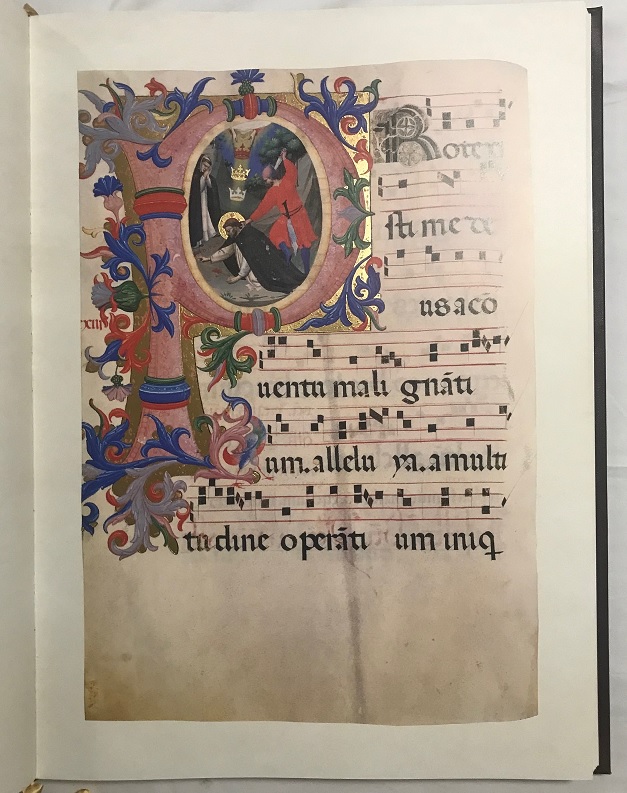 PRotexi
sti me de
us a cō
uentu mali gnāti
um. allelu ya. a multi
tudine operāti um iniq